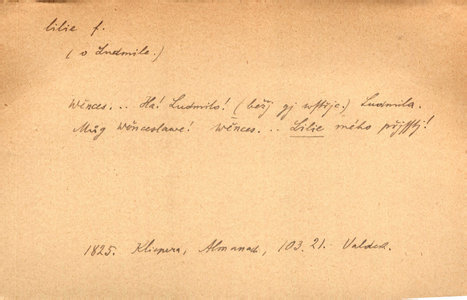 lilie f.
( o Ludmile.)
Wěnces... Ha! Ludmilo! (běžj gj wstřje.) Ludmila.
Můg Wěnceslawe! Wěnces... Lilie mého přjsstj!
1825. Klicpera, Almanach, 103. 21. Valdek.